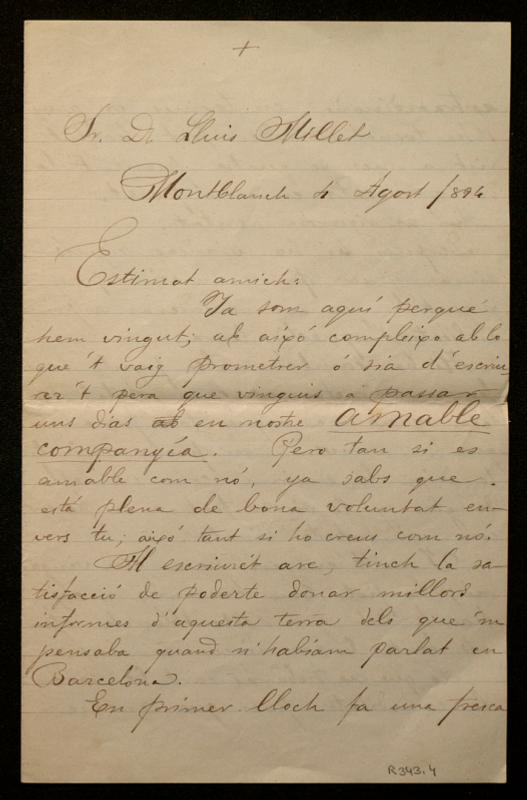 +
Sr. Dn Lluis Millet
Montblanch 4 Agost /894
Estimat amich:
Ja som aquí perqué
hem vingut; ab aixó compleixo ab lo
que 't vaig prometrer ó sia d'escriu
rer't pera que vinguis á passar
uns días ab en nostre amable
companyía. Pero tan si es
amable com nó, ya sabs que
está plena de bona voluntat en-
vers tu; aixó tant si ho creus com nó.
Al escriurét are, tinch la sa-
tisfacció de poderte donar millors
informes d'aquesta terra dels que 'm
pensaba quand n'habíam parlat en
Barcelona.
En primer lloch fa una fresca
R343.4